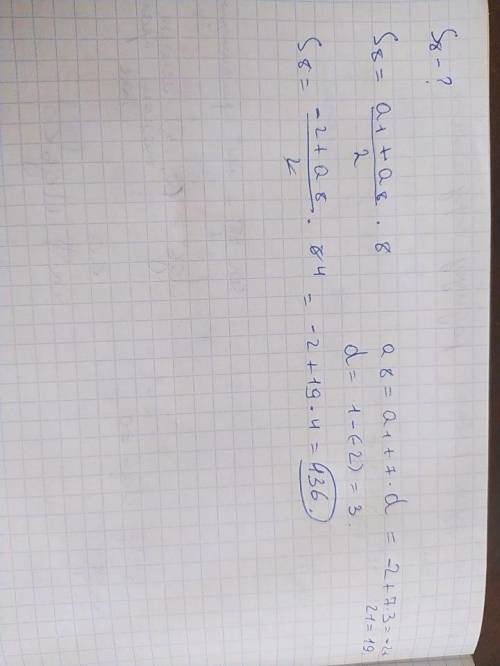 S8 - ?
S8 = a1 + a8 / 2 · 8
a8 = a1 + 7 · d = -2 + 7·3 = -2
21 = 19.
d = 1 - (-2) = 3.
S8 = -2 + a8 / 2 · 8 4 = -2 + 19 · 4 = 136.